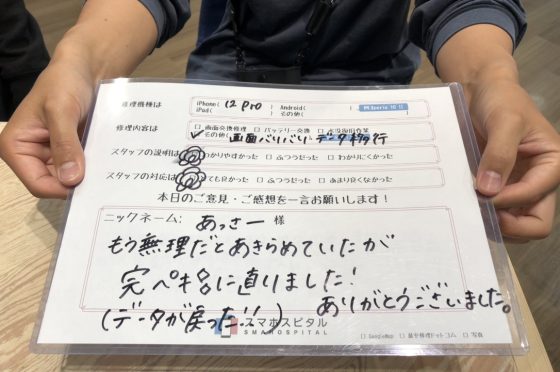 修理機種は iPhone( 12 Pro ) Android( ) 例.Xperia 10 II
iPad( ) その他( )
修理内容は □画面交換修理 □バッテリー交換 □水没復旧作業
その他( 画面バリバリ データ移行
スタッフの説明は わかりやすかった □ふつうだった □わかりにくかった
スタッフの対応は とても良かった □ふつうだった □あまり良くなかった
本日のご意見・ご感想を一言お願いします!
ニックネーム: あっさー 様
もう無理だとあきらめていたが
完ペキに直りました!
(データが戻った!!) ありがとうございました。
スマホスピタル
SMAHOSPITAL
□GoogleMap □最安修理ドットコム □写真